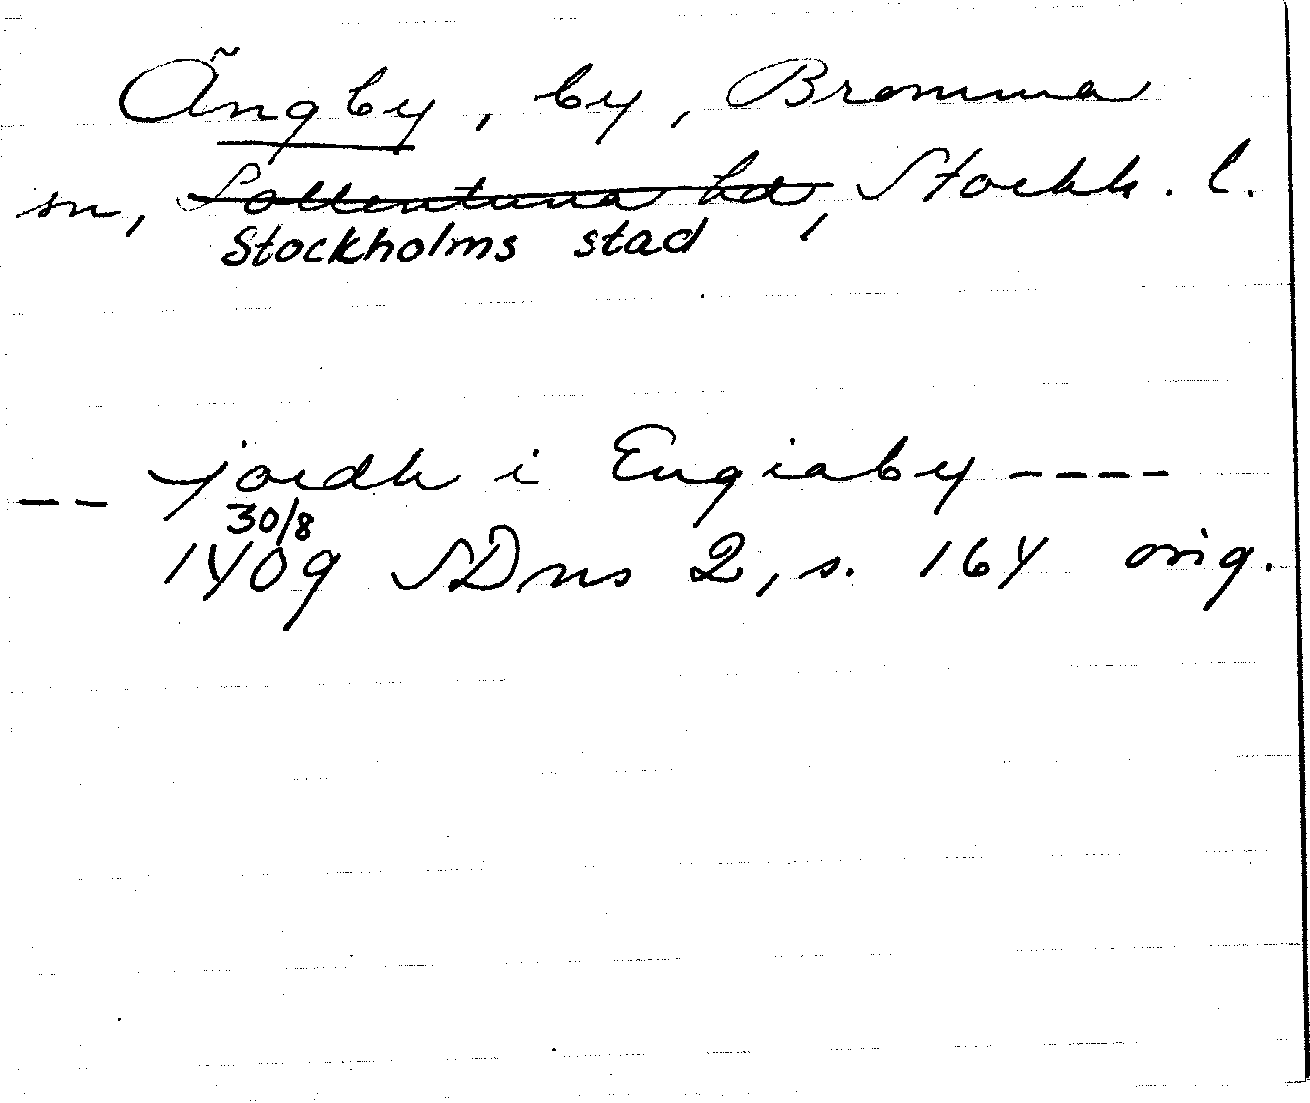 Ängby, by, Bromma
sn, Sollentuna hd, Stockh. l.
Stockholms stad
-- jordh i Engiaby ----
30/8
1409 SDns 2, s. 164 orig.